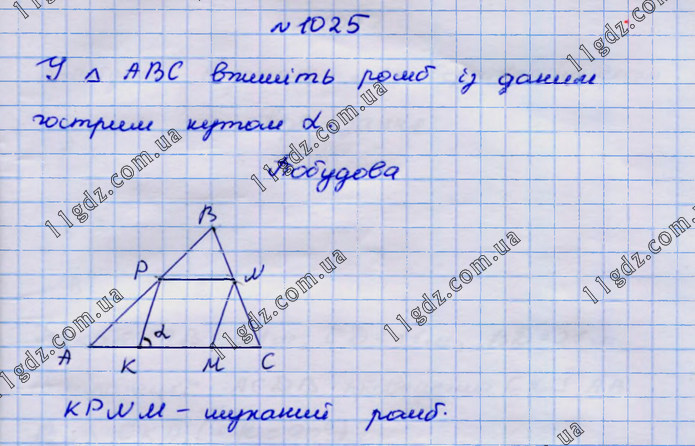 №1025
У △ ABC впишіть ромб із даним
гострим кутом α.
Побудова
B
P N
α
A K M C
KPNM - шуканий ромб.
11gdz.com.ua
11gdz.com.ua
11gdz.com.ua
11gdz.com.ua
11gdz.com.ua
11gdz.com.ua
11gdz.com.ua
11gdz.com.ua
ua